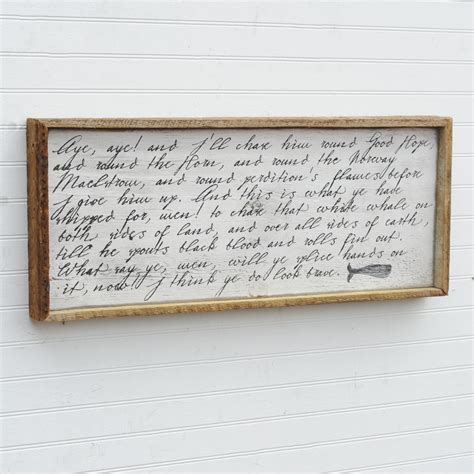 Aye, aye! and I'll chase him round Good Hope,
and round the Horn, and round the Norway
Maelstrom, and round perdition's flames before
I give him up. And this is what ye have
shipped for, men! to chase that white whale on
both sides of land, and over all sides of earth,
till he spouts black blood and rolls fin out.
What say ye, men, will ye splice hands on
it, now? I think ye do look brave.